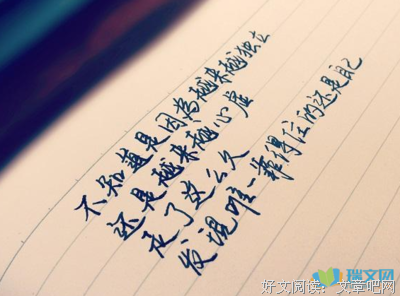 不知道是因为越来越独立
还是越来越心虚
走了这么久
发现唯一靠得住的还是自己
瑞文网
好文阅读：文章吧网